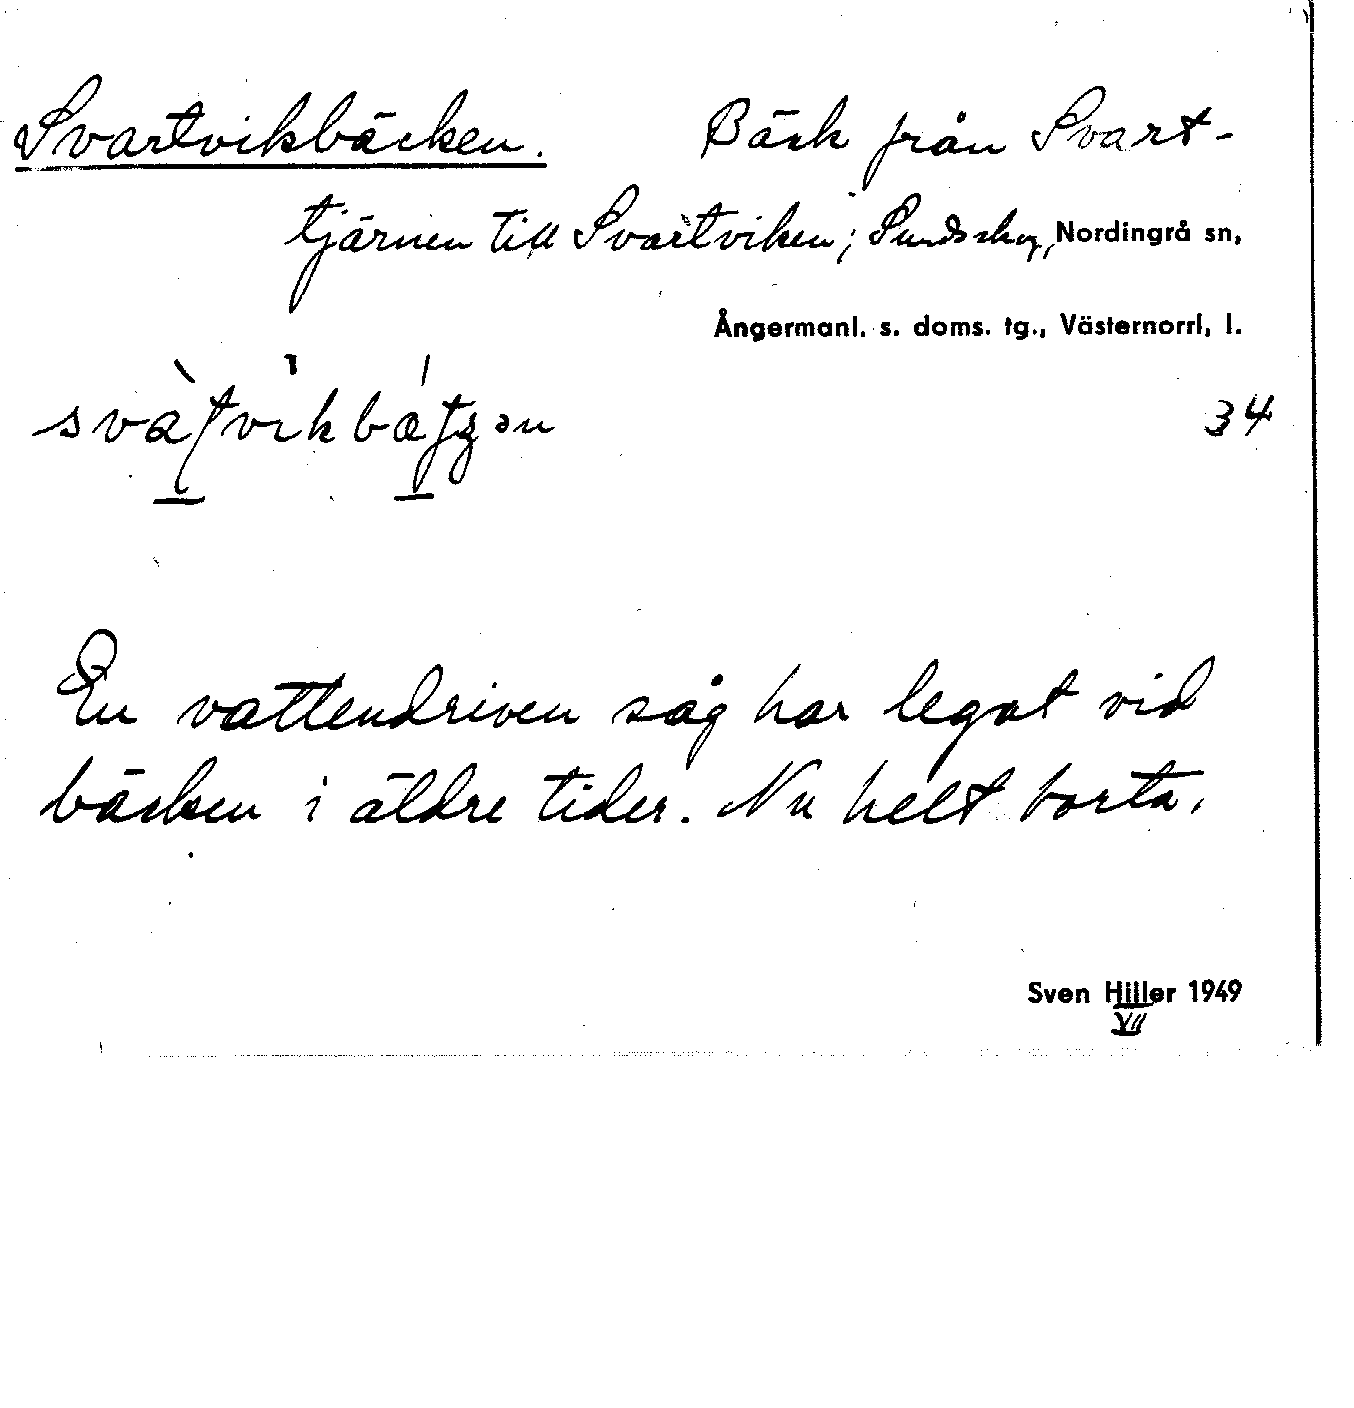 Svartvikbäcken. Bäck från Svart-
tjärnen till Svartviken; Sundskog, Nordingrå sn,
Ångermanl. s. doms. tg., Västernorrl. l.
34
En vattendriven såg har legat vid
bäcken i äldre tider. Nu helt borta.
Sven Hiller 1949
VII